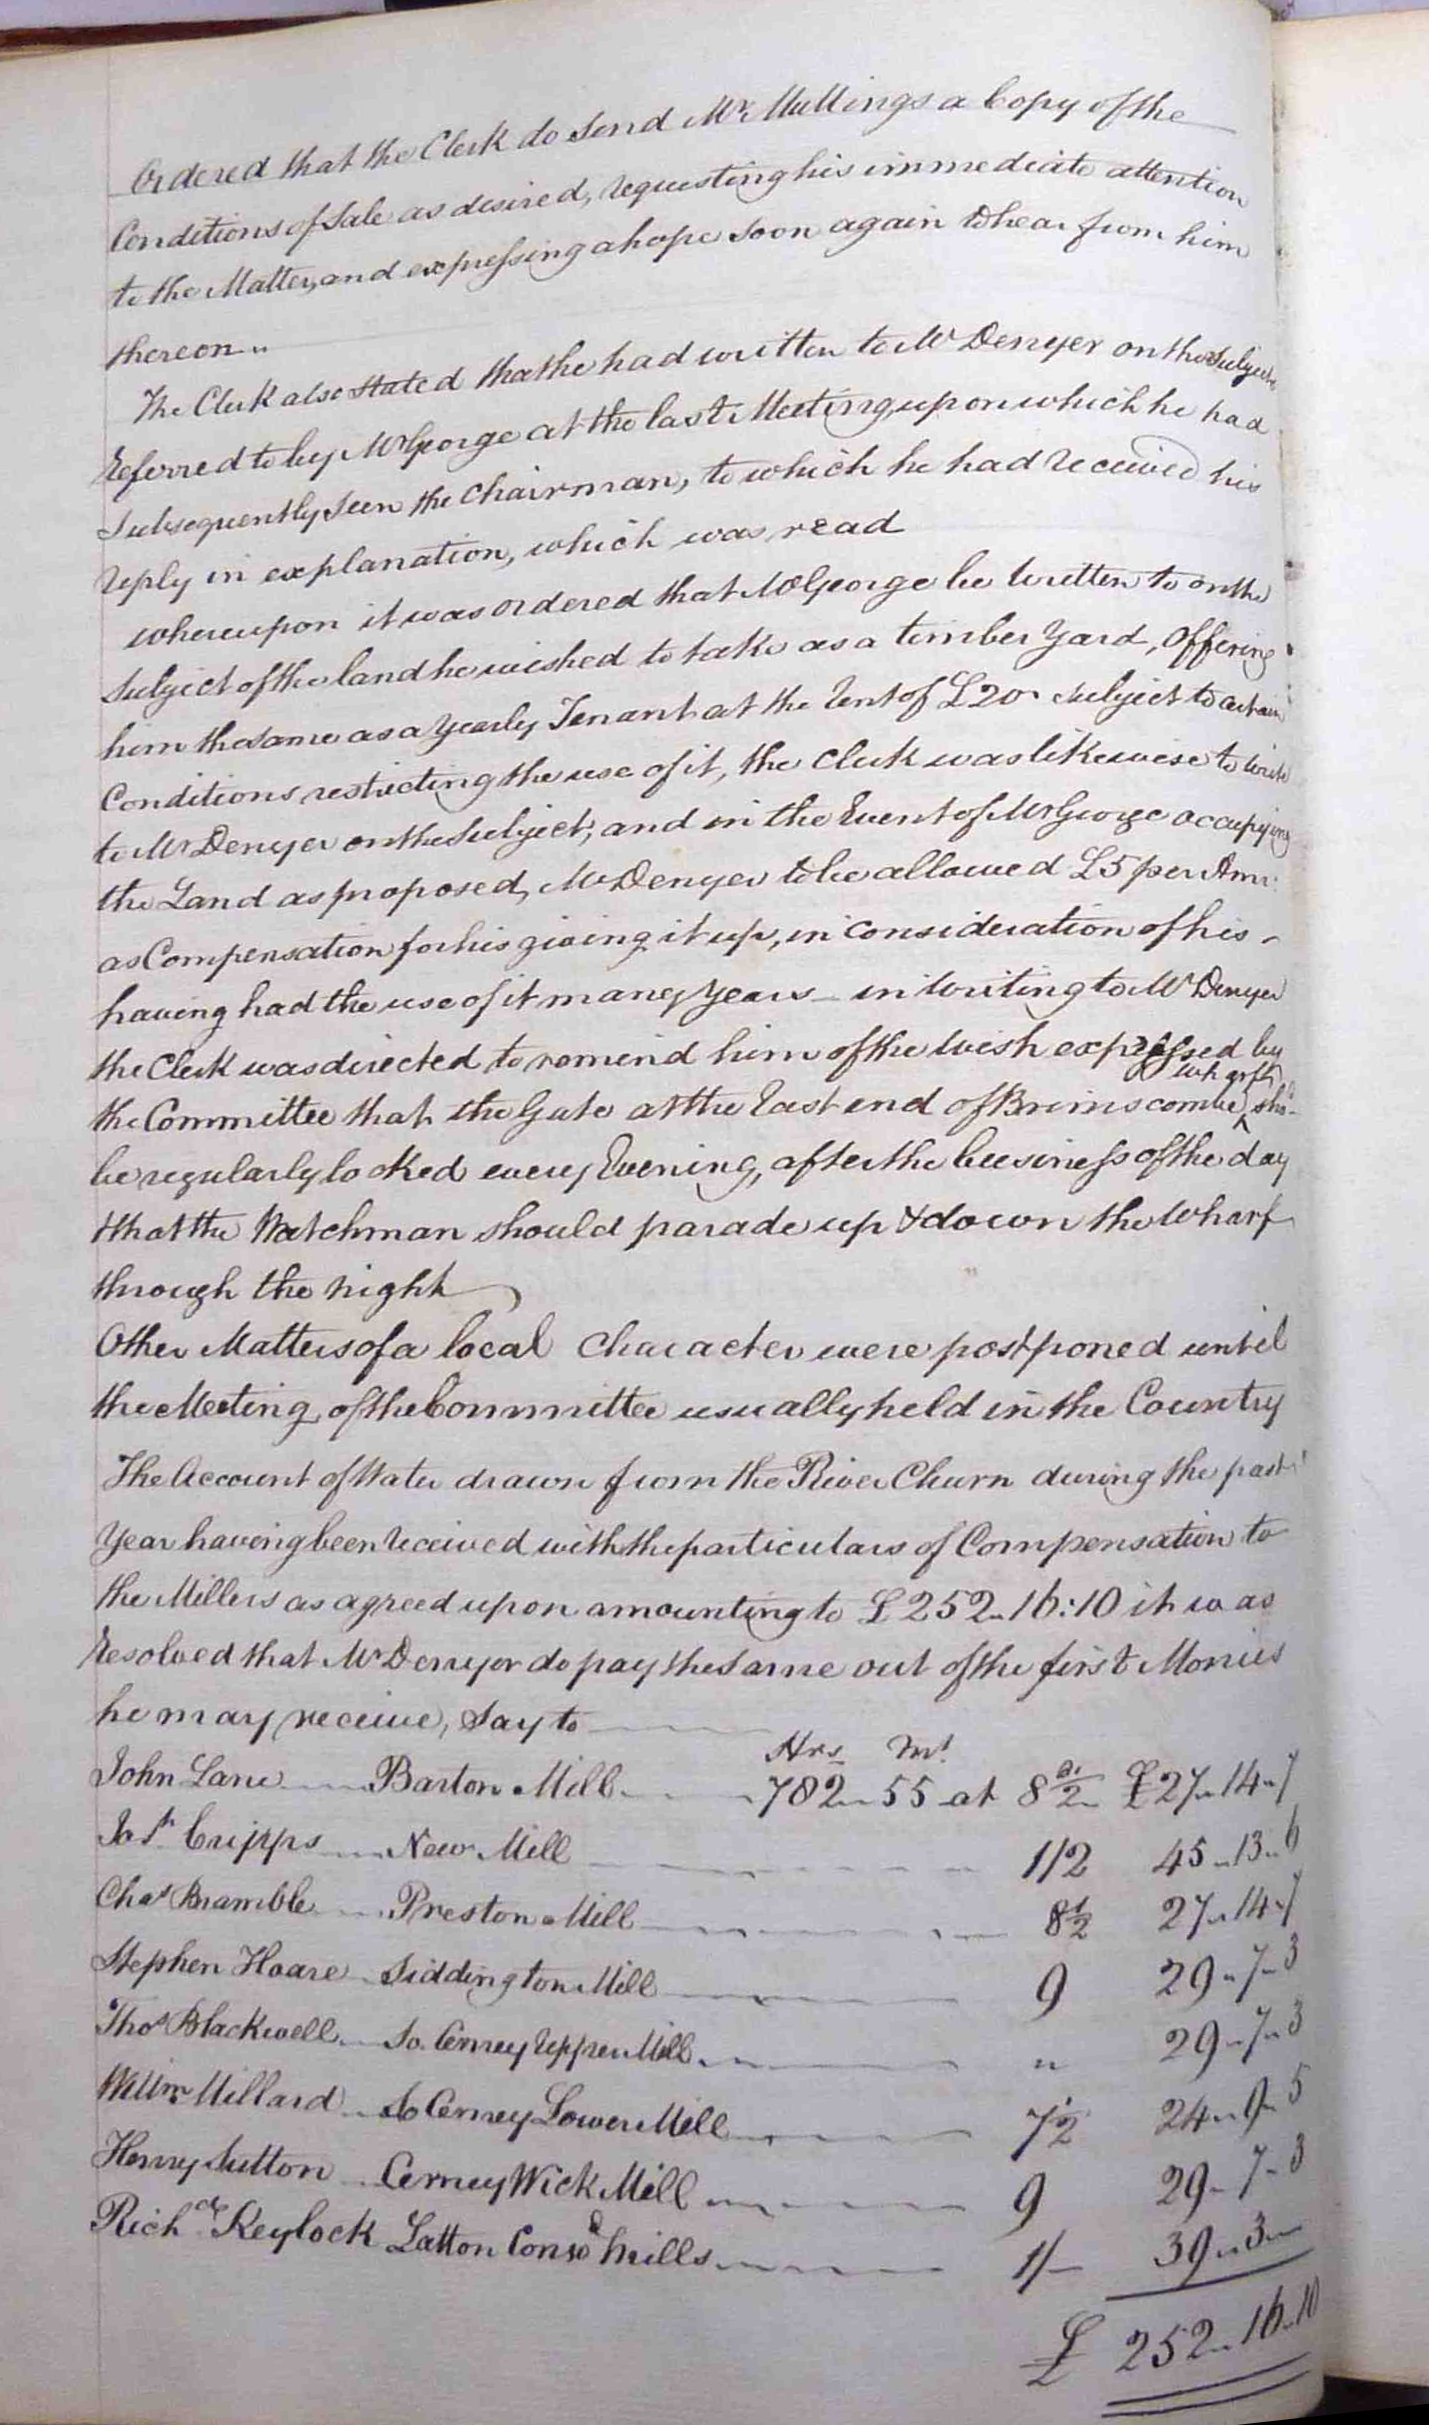 Ordered that the Clerk do send Mr. Mullings a Copy of the
Conditions of Sale as desired, requesting his immediate attention
to the Matter, and expressing a hope soon again to hear from him
thereon ..
The Clerk also stated that he had written to Mr Denyer on the subject
referred to by Mr George at the last Meeting, upon which he had
subsequently seen the Chairman, to which he had received his
reply in explanation, which was read
whereupon it was ordered that Mr George be written to on the
subject of the land he wished to take as a timber Yard, Offering
him the same as a Yearly Tenant at the Rent of £20. subject to certain
Conditions restricting the use of it, the Clerk was likewise to write
to Mr Denyer on the Subject; and in the Event of Mr George occupying
the Land as proposed, Mr Denyer to be allowed £5 per Ann:
as Compensation for his giving it up, in consideration of his -
having had the use of it many Years - in writing to Mr Denyer
the Clerk was directed to remind him of the Wish expressed by
the Committee that the Gate at the East end of Brimscombe wharf sho.d
be regularly locked every Evening, after the business of the day
& that the Watchman should parade up & down the Wharf
through the night
Other Matters of a local Character were postponed until
the Meeting of the Committee usually held in the Country
The Account of Water drawn from the River Churn during the past
Year having been received with the particulars of Compensation to
the Millers as agreed upon amounting to £252..16:10 it was
Resolved that Mr Denyer do pay the Same out of the first Monies
he may receive, Say to
Hrs Mts
John Lane Barton Mill 782..55 at 8 1/2 d. £27..14..7
Josh. Cripps New Mill 1/2 45..13..6
Chas Bramble Preston Mill 8 1/2 27..14..7
Stephen Hoare Siddington Mill 9 29..7..3
Thos Blackwell So. Cerney Upper Mill " 29..7..3
Willm Millard So Cerney Lower Mill 7 1/2 24..9..5
Henry Sutton Cerney Wick Mill 9 29..7..3
Richd. Keylock Latton Consd Mills 1/- 39..3..-
£ 252..16..10